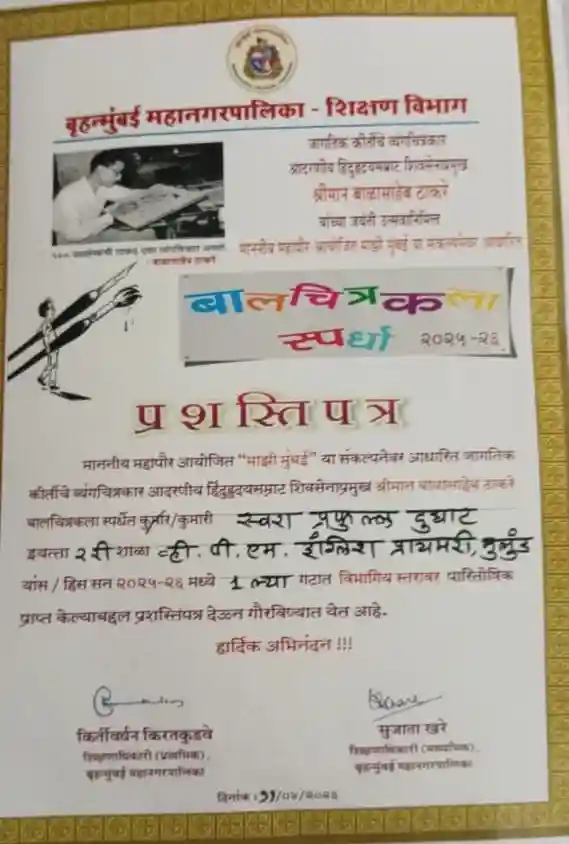 बृहन्मुंबई महानगरपालिका - शिक्षण विभाग
जागतिक कीर्तीचे व्यंगचित्रकार
आदरणीय हिंदुहृदयसम्राट शिवसेनाप्रमुख
श्रीमान बाळासाहेब ठाकरे
यांच्या जयंती उत्सवानिमित्त
माननीय महापौर आयोजित माझी मुंबई या संकल्पनेवर आधारित
बाळासाहेब ठाकरे
बालचित्रकला
स्पर्धा २०२५-२६
प्रशस्तिपत्र
माननीय महापौर आयोजित "माझी मुंबई" या संकल्पनेवर आधारित जागतिक
कीर्तीचे व्यंगचित्रकार आदरणीय हिंदुहृदयसम्राट शिवसेनाप्रमुख श्रीमान बाळासाहेब ठाकरे
बालचित्रकला स्पर्धेत कुमार/कुमारी स्वरा प्रफुल्ल दुघाट
इयत्ता २री शाळा व्ही. पी. एम. इंग्लिश प्रायमरी, मुलुंड
यांस / हिस सन २०२५-२६ मध्ये १ल्या गटात विभागिय स्तरावर पारितोषिक
प्राप्त केल्याबद्दल प्रशस्तिपत्र देऊन गौरविण्यात येत आहे.
हार्दिक अभिनंदन !!!
किर्तीवर्धन किरतकुडवे
शिक्षणाधिकारी (प्राथमिक),
बृहन्मुंबई महानगरपालिका
सुजाता खरे
शिक्षणाधिकारी (माध्यमिक),
बृहन्मुंबई महानगरपालिका
दिनांक : /०४/२०२६